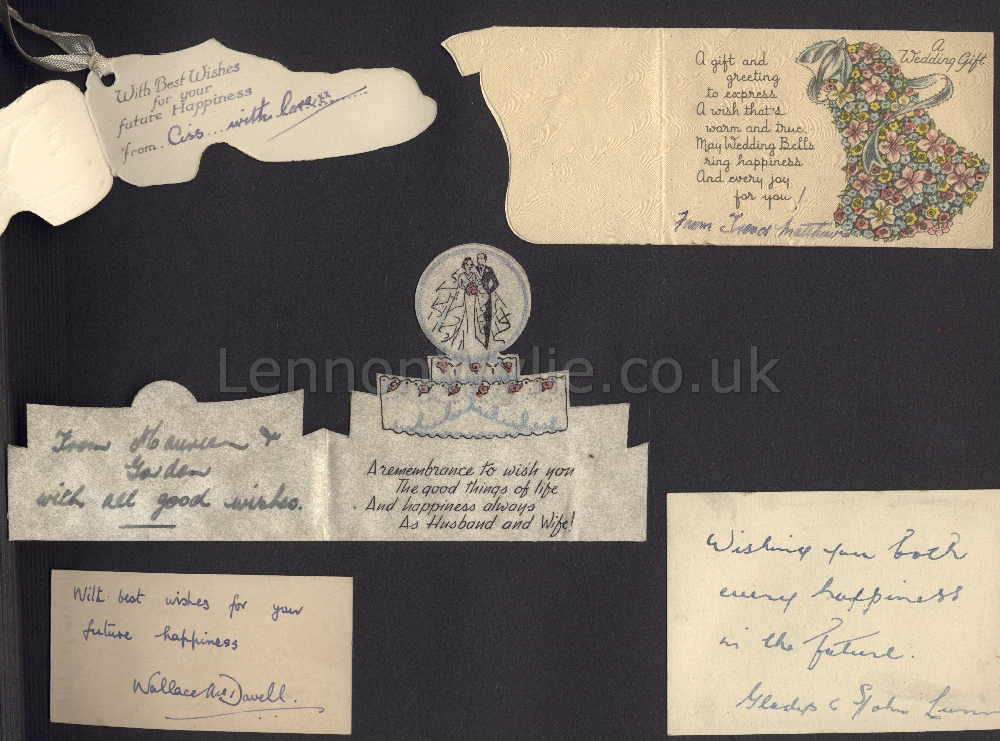 With Best Wishes
for your
future Happiness
from. Ciss... with love xx
A
Wedding Gift
A gift and
greeting
to express
A wish that's
warm and true.
May Wedding Bells
ring happiness
And every joy
for you!
From Trevor Matthews
LennonWylie.co.uk
From Maureen &
Gordon
with all good wishes.
A remembrance to wish you
The good things of life
And happiness always
As Husband and Wife!
With best wishes for your
future happiness
Wallace McDowell.
Wishing you both
every happiness
in the future.
Gladys & John